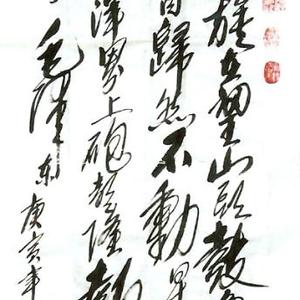 旗在望山头鼓
自歸然不動早
洋界上砲聲隆報
毛澤东
庚寅年